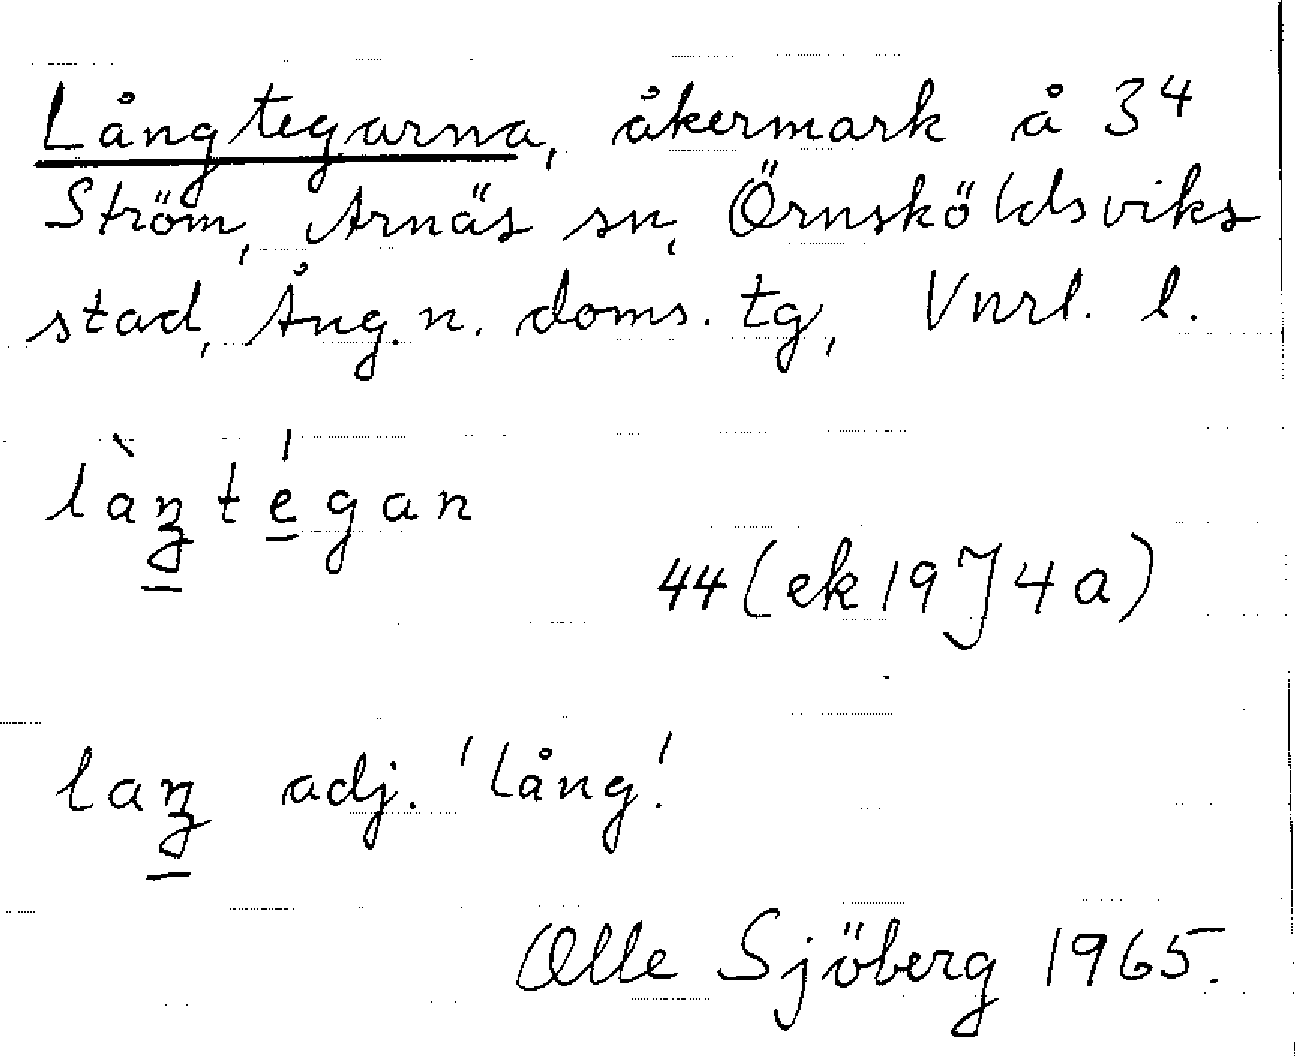 Långtegarna, åkermark å 3⁴
Ström, Arnäs sn, Örnsköldsviks
stad, Ång. n. doms. tg, Vnrl. l.
là̱ŋté̱gan
44 (ek 19 J 4 a)
laŋ̱ adj. 'lång'.
Olle Sjöberg 1965.